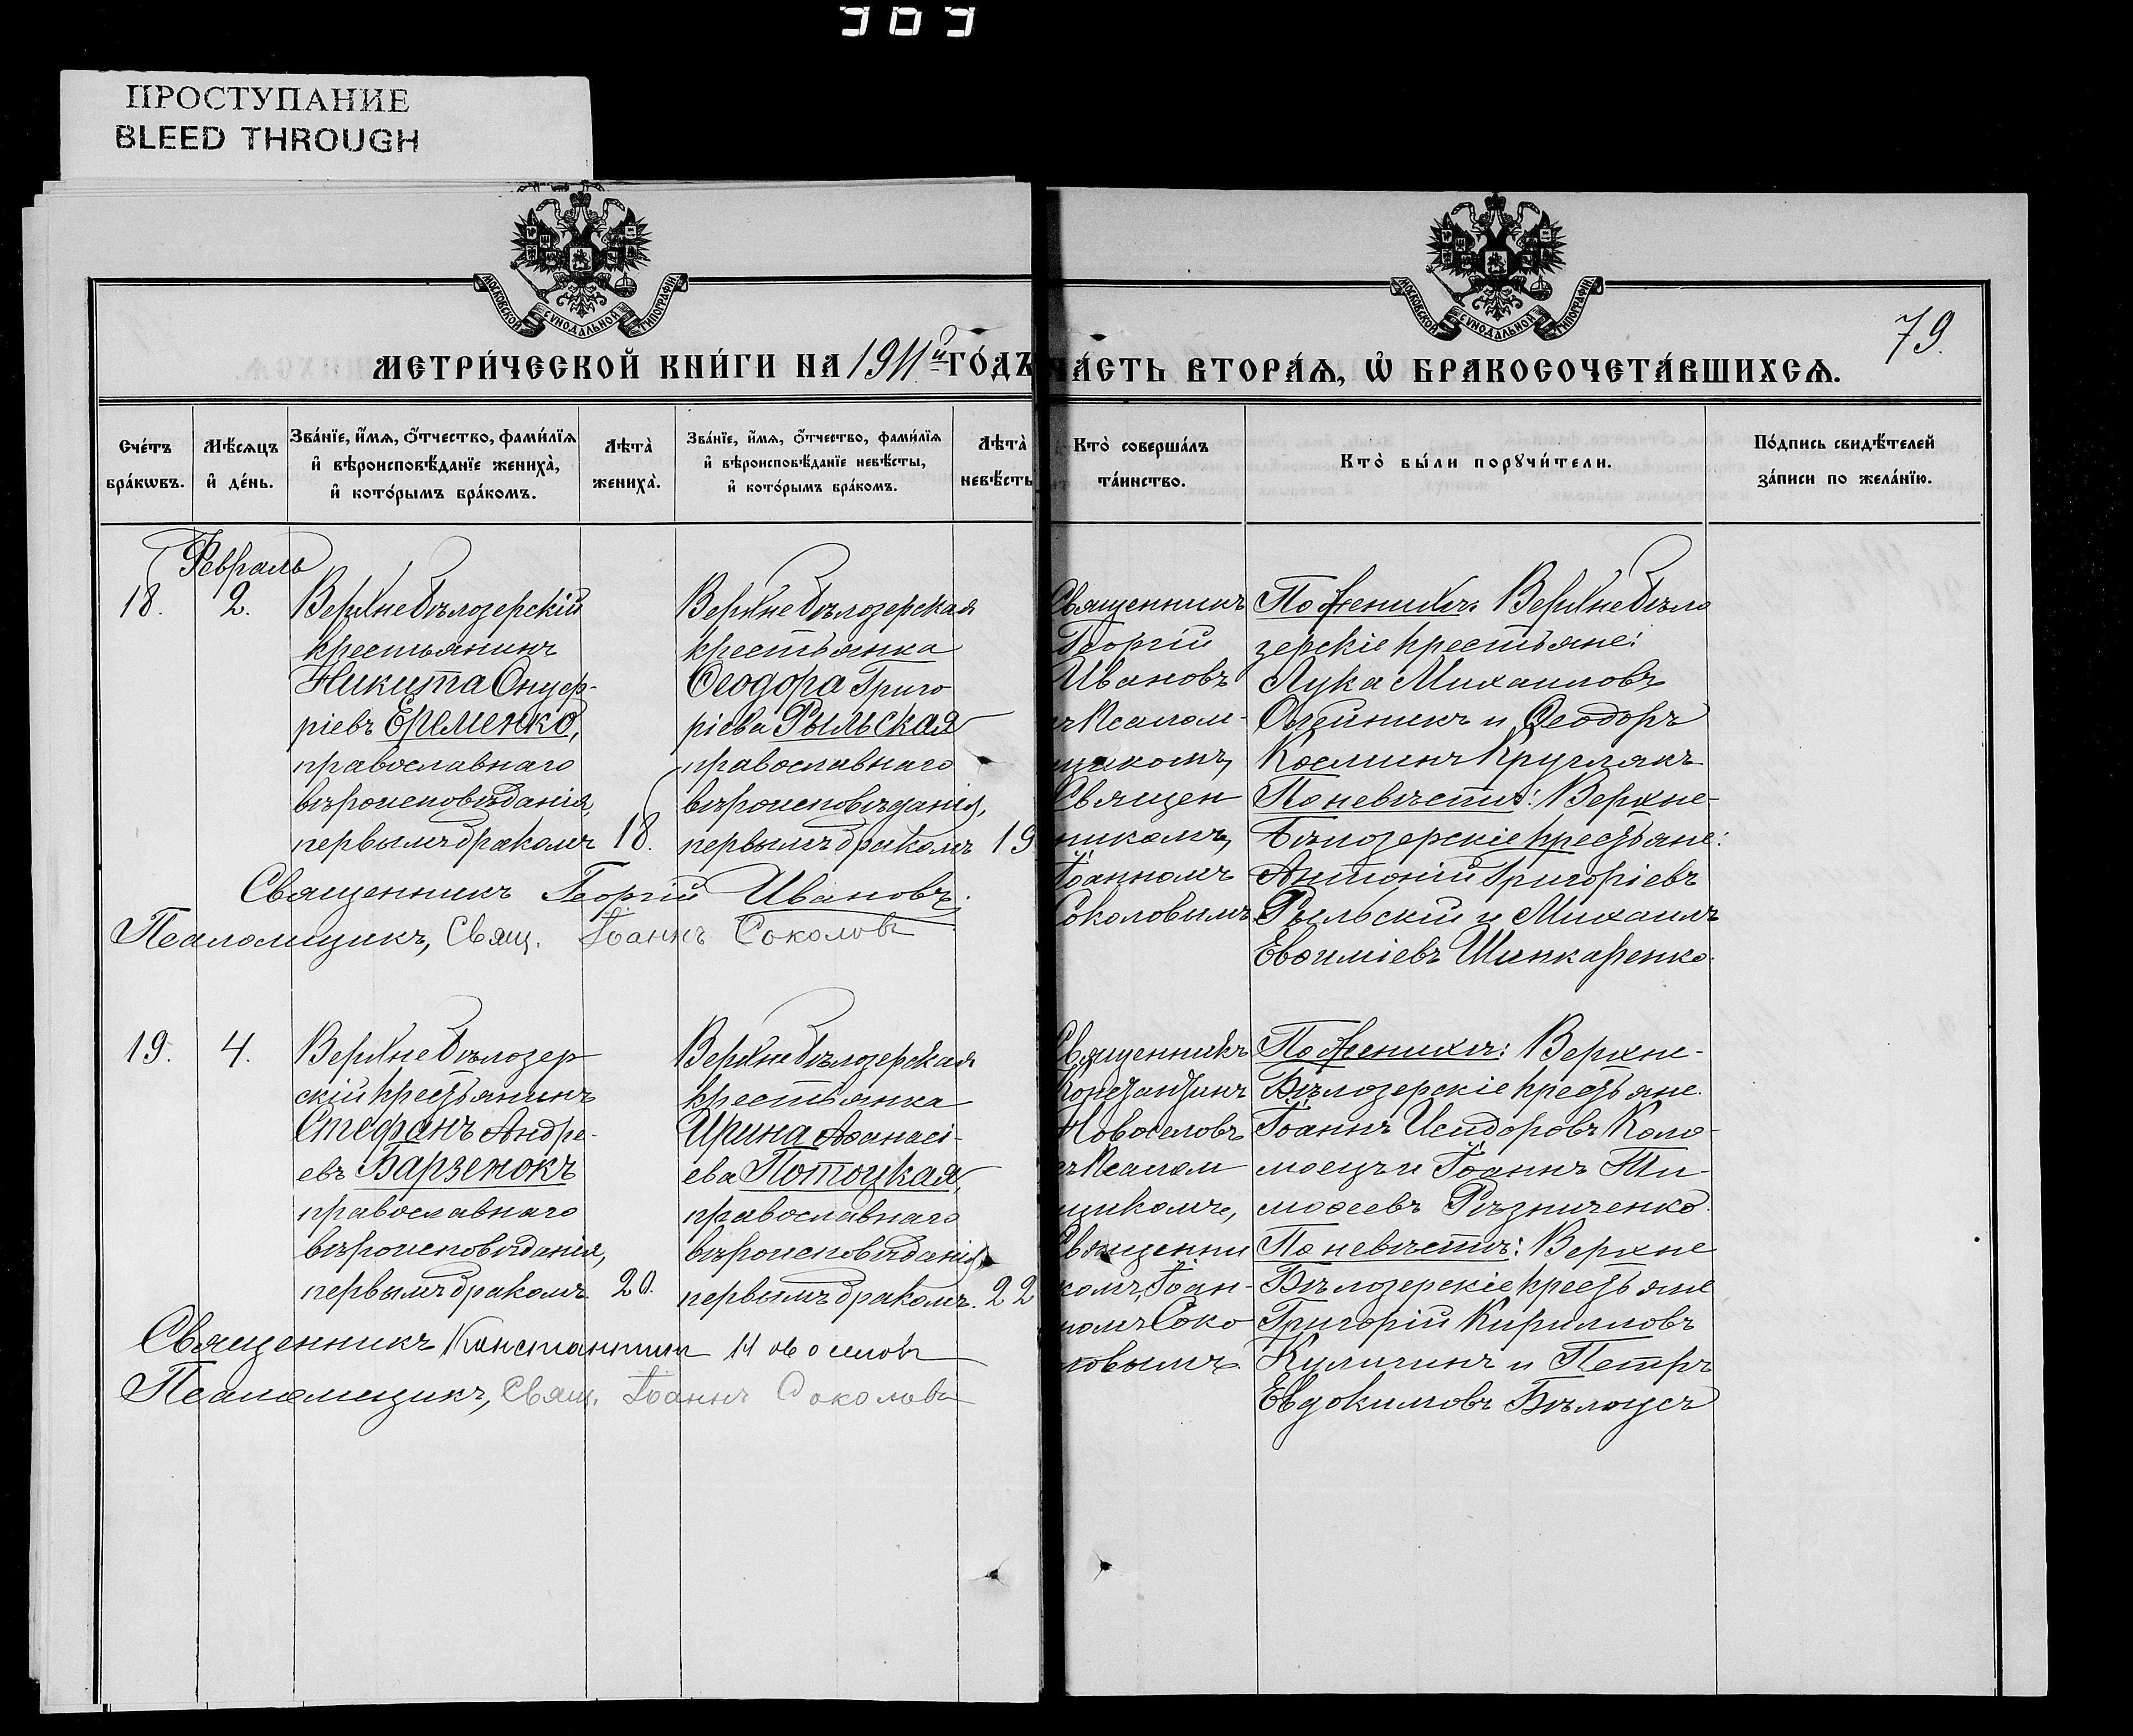 303
ПРОСТУПАНИЕ
BLEED THROUGH
МОСКОВСКОЙ СѴНОДАЛЬНОЙ ТИПОГРАФІИ
МОСКОВСКОЙ СѴНОДАЛЬНОЙ ТИПОГРАФІИ
79.
МЕТРИ́ЧЕСКОЙ КНИ́ГИ НА 1911й ГО́ДЪ
ЧА́СТЬ ВТОРА́Ѧ, Ѡ҆ БРАКОСОЧЕТА́ВШИХСѦ.
Сче́тъ
бра́кѡвъ.
Мѣ́сѧцъ
и҆ де́нь.
Зва́нїе, и҆́мѧ, о҆́тчество, фами́лїѧ
и҆ вѣроисповѣ́данїе жениха̀,
и҆ кото́рымъ бра́комъ.
Лѣта̀
жениха̀.
Зва́нїе, и҆́мѧ, о҆́тчество, фами́лїѧ
и҆ вѣроисповѣ́данїе невѣ́сты,
и҆ кото́рымъ бра́комъ.
Лѣта̀
невѣ́сты
Кто̀ соверша́лъ
та́инство.
Кто̀ бы́ли порꙋчи́тели.
По́дпись свидѣ́телей
за́писи по жела́нїю.
Февраль
18.
2.
Верхнебѣлозерскій
крестьянинъ
Никита Онуф-
ріевъ Еременко,
православнаго
вѣроисповѣданія,
первымъ бракомъ
18.
Верхнебѣлозерская
крестьянка
Ѳеодора Григо
ріева Рыльская
православнаго
вѣроисповѣданія,
первымъ бракомъ
19
Священникъ
Георгій
Ивановъ
съ Псалом-
щикомъ,
Священ
никомъ,
Іоанномъ
Соколовымъ
По женихѣ: Верхнебѣло
зерскіе крестьяне:
Лука Михаиловъ
Олейникъ и Ѳеодоръ
Косминъ Круглякъ
По невѣстѣ: Верхне-
Бѣлозерскіе крестьяне:
Антоній Григоріевъ
Рыльскій и Михаилъ
Евѳиміевъ Шинкаренко.
Священникъ Георгій Ивановъ.
Псаломщикъ, Свящ. Іоаннъ Соколовъ
19.
4.
Верхнебѣлозер
скій крестьянинъ
Стефанъ Андре-
евъ Барзенокъ
православнаго
вѣроисповѣданія,
первымъ бракомъ.
20.
Верхнебѣлозерская
крестьянка
Ирина Аѳанасі-
ева Потоцкая,
православнаго
вѣроисповѣданія,
первымъ бракомъ.
22
Священникъ
Константинъ
Новоселовъ
съ Псалом
щикомъ,
Священни
комъ, Іоан-
номъ Соко
ловымъ
По женихѣ: Верхне-
Бѣлозерскіе крестьяне.
Іоаннъ Исидоровъ Коло-
моецъ и Іоаннъ Ти-
моѳеевъ Рѣзниченко.
По невѣстѣ: Верхне
Бѣлозерскіе крестьяне
Григорій Кирилловъ
Куличинъ и Петръ
Евдокимовъ Бѣлоусъ
Священникъ Константинъ Новоселовъ
Псаломщикъ, Свящ. Іоаннъ Соколовъ